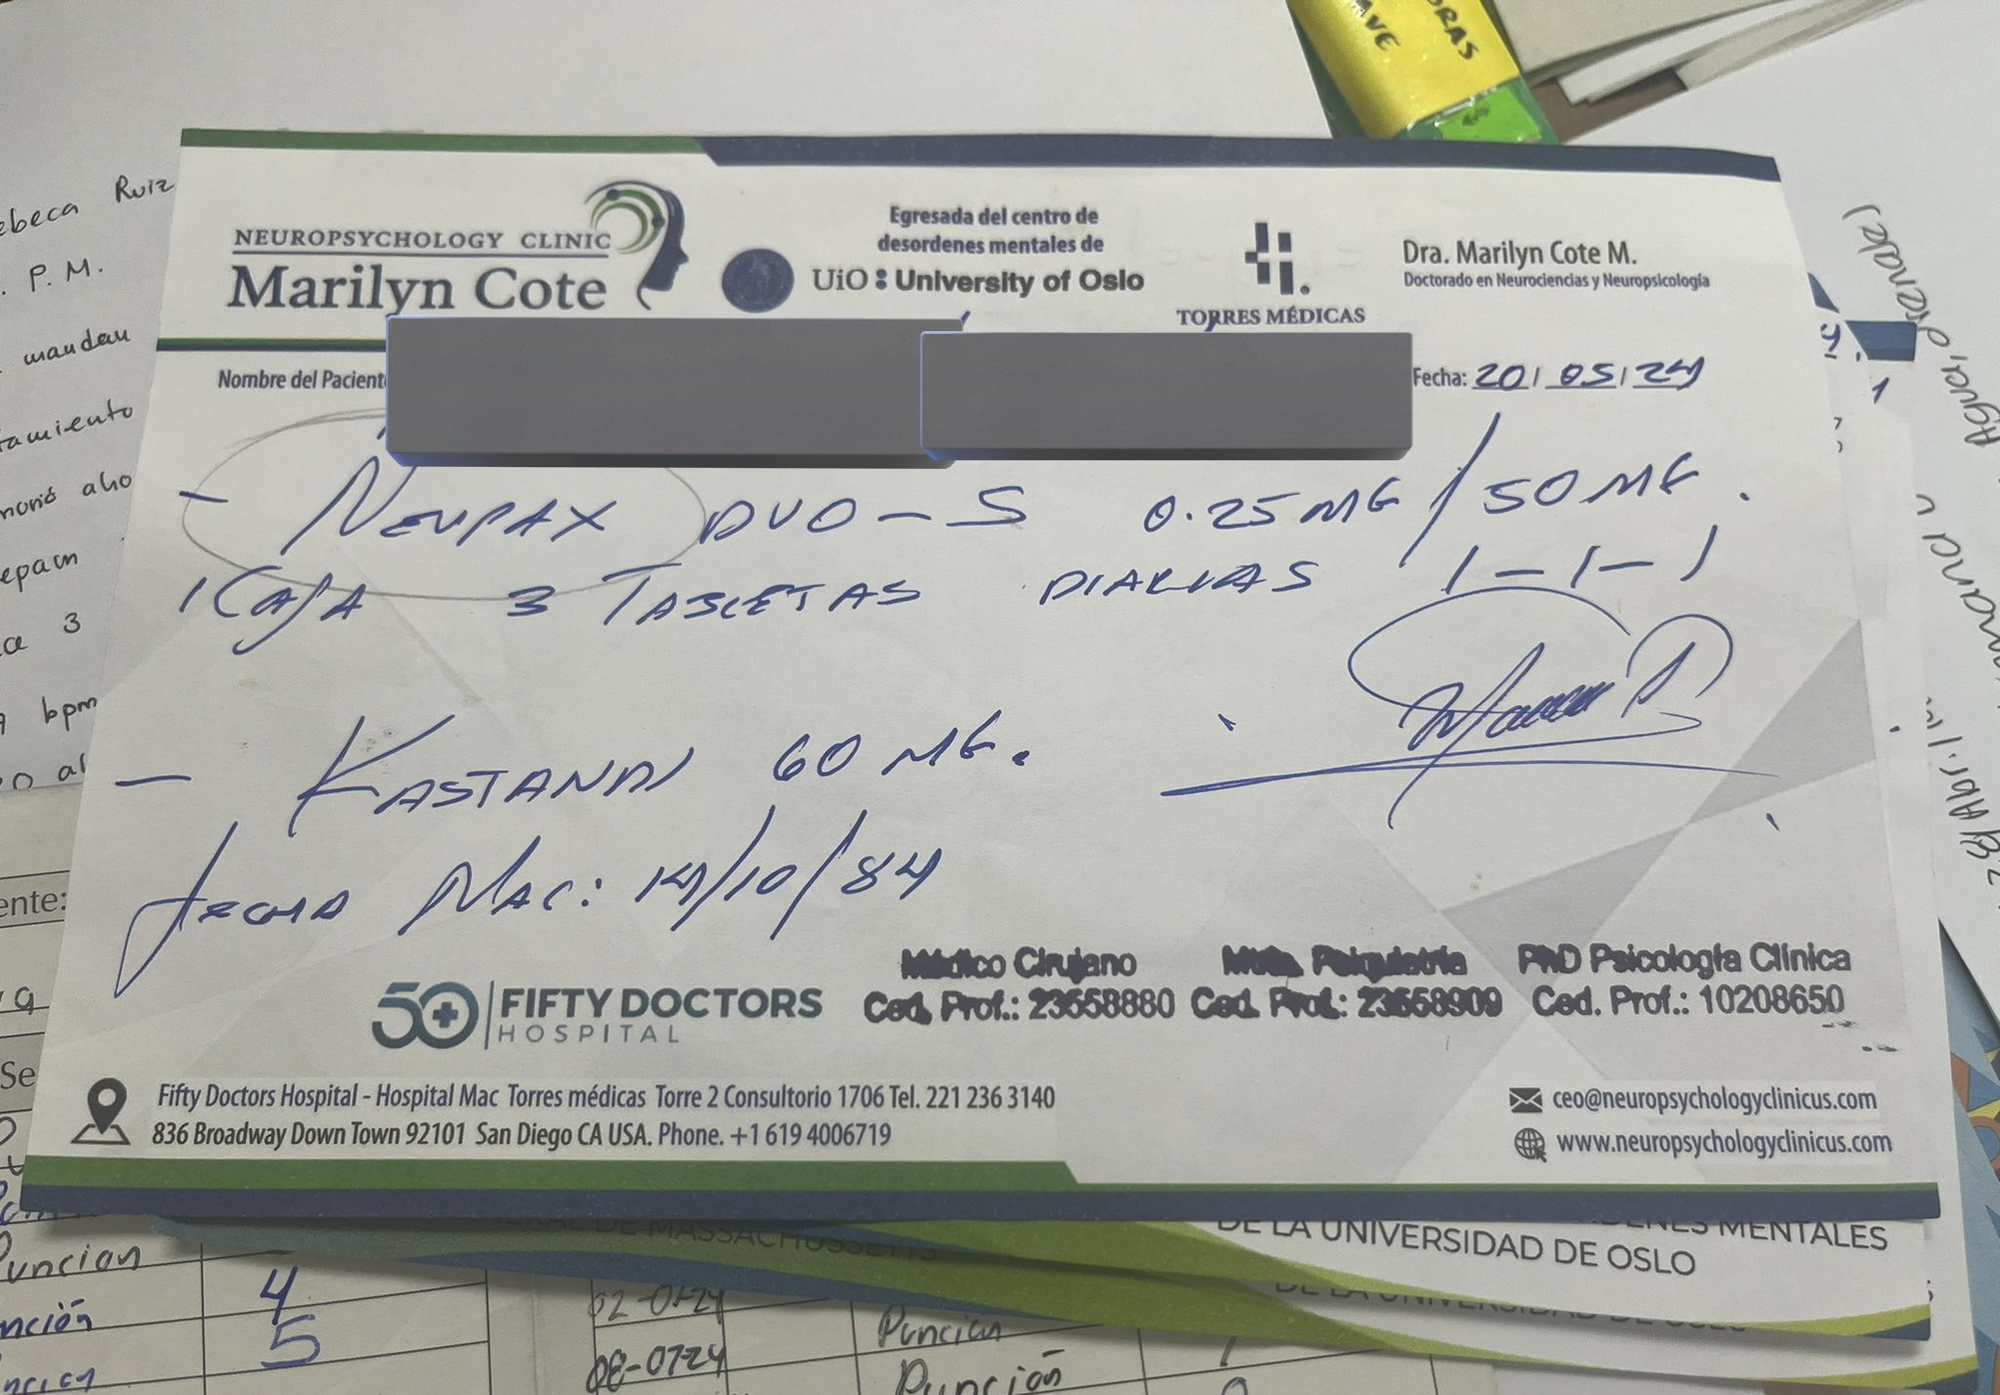 NEUROPSYCHOLOGY CLINIC
Marilyn Cote
Egresada del centro de
desordenes mentales de
UiO : University of Oslo
TORRES MÉDICAS
Dra. Marilyn Cote M.
Doctorado en Neurociencias y Neuropsicología
Nombre del Pacient
Fecha: 20/05/24
- NEUPAX DUO-S 0.25MG/50MG.
1 CAJA 3 TABLETAS DIARIAS 1-1-1
- 60 MG.
FECHA NAC: 14/10/84
Médico Cirujano
Ced. Prof.: 23558880
Psiquiatría
Ced. Prof.: 23558909
PhD Psicología Clínica
Ced. Prof.: 10208650
50 FIFTY DOCTORS
HOSPITAL
Fifty Doctors Hospital - Hospital Mac Torres médicas Torre 2 Consultorio 1706 Tel. 221 236 3140
836 Broadway Down Town 92101 San Diego CA USA. Phone. +1 619 4006719
ceo@neuropsychologyclinicus.com
www.neuropsychologyclinicus.com
MENTALES
DE LA UNIVERSIDAD DE OSLO
ebeca Ruiz
P.M.
mandau
tamiento
epam
3
bpm
ente:
Se
uncion
4
nción
5
02-07-24
Puncion
08-07-24
Punción